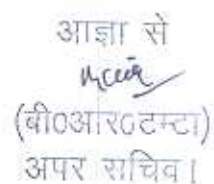 आज्ञा से
(बी०आर०टम्टा)
अपर सचिव।